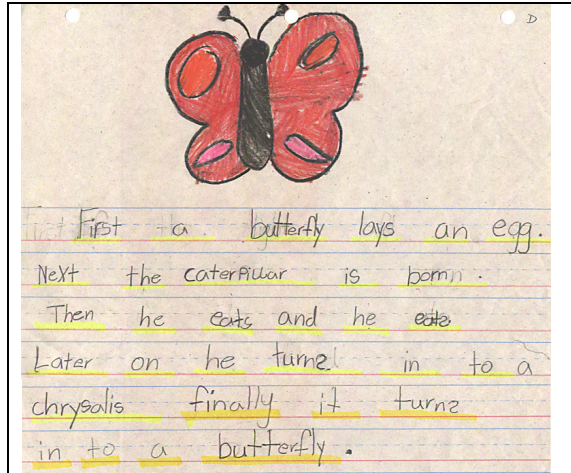 D
First a butterfly lays an egg.
Next the caterpillar is born.
Then he eats and he eats
Later on he turns in to a
chrysalis finally it turns
in to a butterfly.